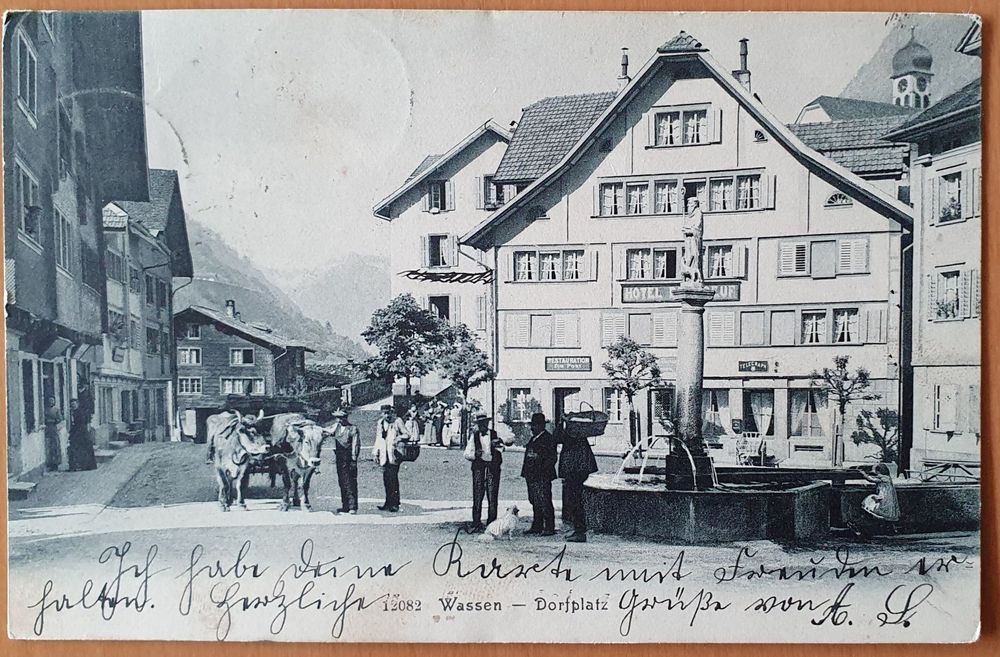 HOTEL
RESTAURATION
Die Post
TELEGRAPH
Ich habe Deine Karte mit Freuden er-
halten. Herzliche Grüße von A. S.
12082 Wassen – Dorfplatz